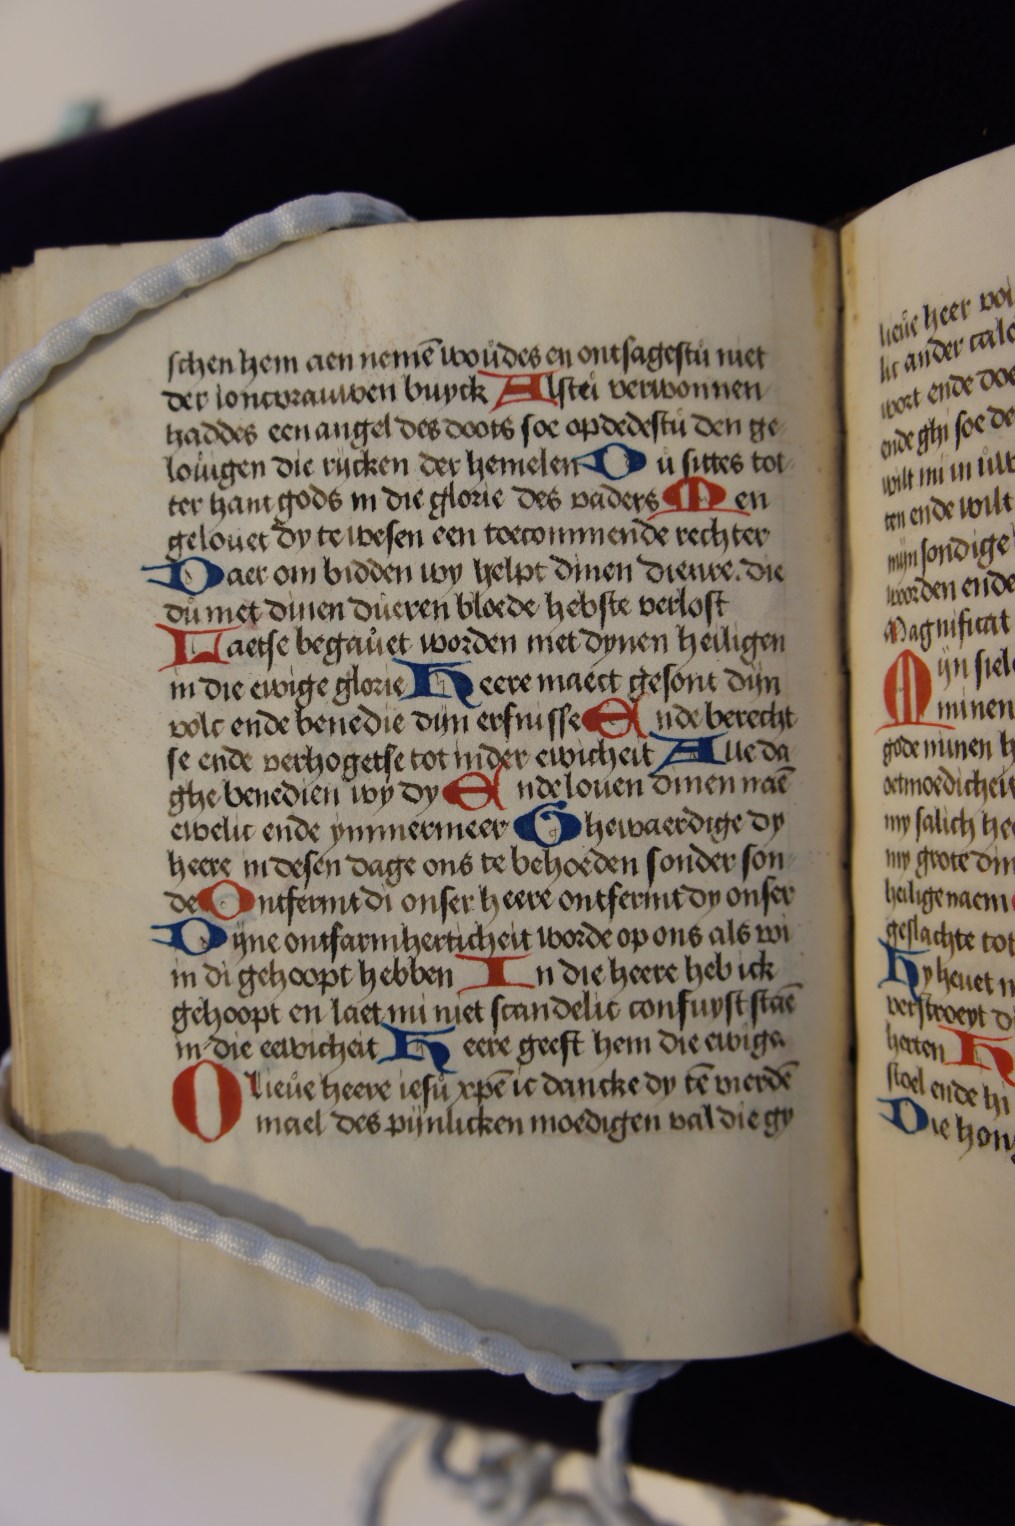 schen hem aen nemē woůdes en ontsagestů niet
der ioncvrauwen buyck Alstu verwonnen
haddes een angel des doots soe opdedestů den ge
loůigen die rijcken der hemelen Du sittes tot
ter hant gods in die glorie des vaders Men
gelouet dy te wesen een toecommende rechter
Daer om bidden wy helpt dinen dieuve. die
dů met dinen důeren bloede hebste verlost
Laetse begauet worden met dynen heiligen
in die ewige glorie Heere maect gesont dijn
volc ende benedie dijn erfnisse Ende berecht
se ende verhogetse tot inder ewicheit Alle da
ghe benedien wy dy Ende louen dinen naē
ewelic ende ymmermeer Ghewaerdige dy
heere in desen dage ons te behoeden sonder son
de Ontfermt di onser heere ontfermt dy onser
Dijne ontfarmherticheit worde op ons als wi
in di gehoopt hebben In die heere heb ick
gehoopt en laet mi niet scandelic confuyst staē
in die eewicheit Heere geeft hem die ewige
O lieůe heere iesů xpē ic dancke dy tē vierdē
mael des pijnlicken moedigen val die gy
lieůe heer
lic ander
wort ende
ende ghi soe
wilt mi in
ten ende wilt
mijn sondige
woorden ende
Magnificat
Mijn
minen
gode minen
oetmoedicheit
my salich
my grote
heilige naem
geslachte tot
Hy heuet
verstroeyt
herten H
stoel ende hi
Die